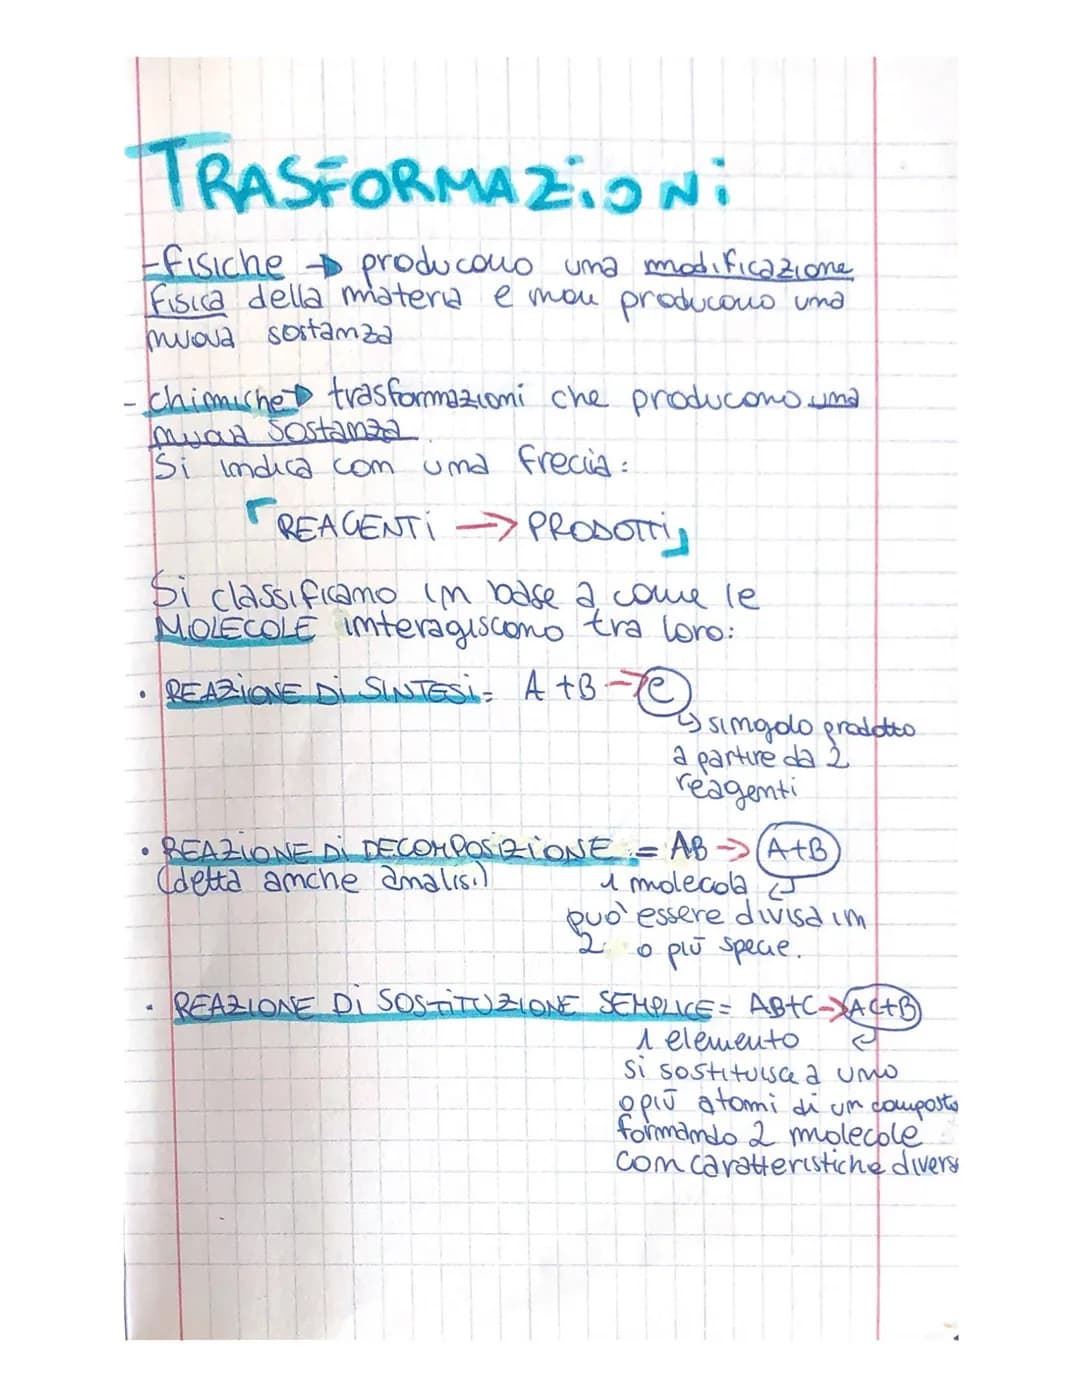 TRASFORMAZiONi
-fisiche → producono una modificazione
fisica della materia e non producono una
nuova sostanza
- chimiche → trasformazioni che producono una
nuova sostanza
Si indica con una frecia:
REAGENTi → PRODOTTi
Si classificano in base a come le
MOLECOLE interagiscono tra loro:
• REAZiONE Di SINTESi= A+B → C
↳ singolo prodotto
a partire da 2
reagenti
• REAZIONE Di DECOMPOSiZiONE := AB → A+B
(detta anche analisi) 1 molecola
può essere divisa in
2 o più specie.
• REAZIONE Di SOSTiTUZIONE SEMPLICE= AB+C→AC+B
1 elemento
si sostituisce a uno
o più atomi di un composto
formando 2 molecole
con caratteristiche divers